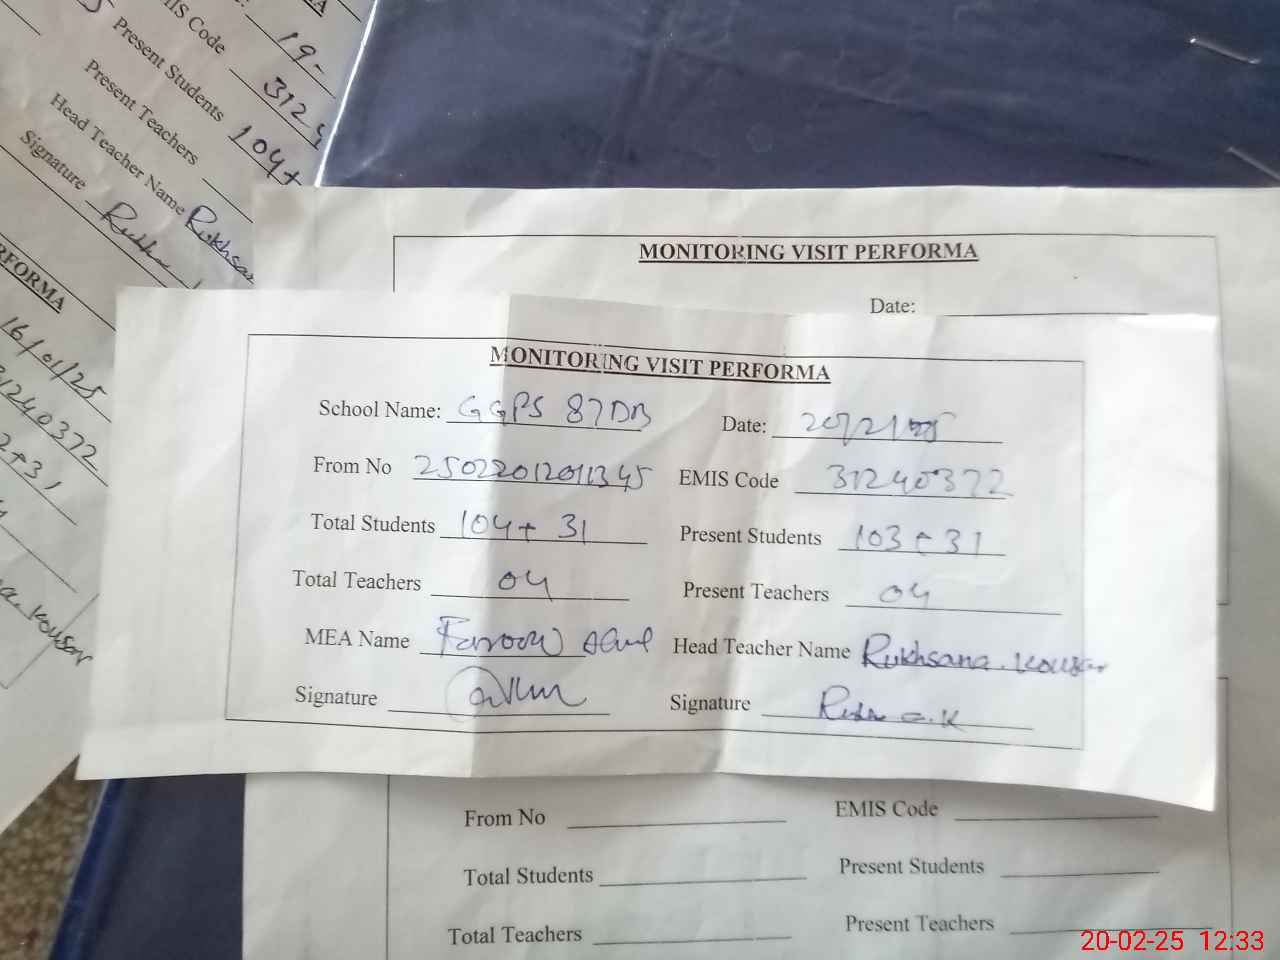 IS Code 19-
Present Students 3124
Present Teachers 104+
Head Teacher Name Rukhsa
Signature
RFORMA
16/01/25
31240372
2+31
a. Kousar
MONITORING VISIT PERFORMA
Date:
MONITORING VISIT PERFORMA
School Name: GGPS 87DB Date: 20/2/25
From No 25022012011345 EMIS Code 31240372
Total Students 104+ 31 Present Students 103+31
Total Teachers 04 Present Teachers 04
MEA Name Head Teacher Name Rukhsana. Kousar
Signature Signature
From No EMIS Code
Total Students Present Students
Total Teachers Present Teachers
20-02-25 12:33